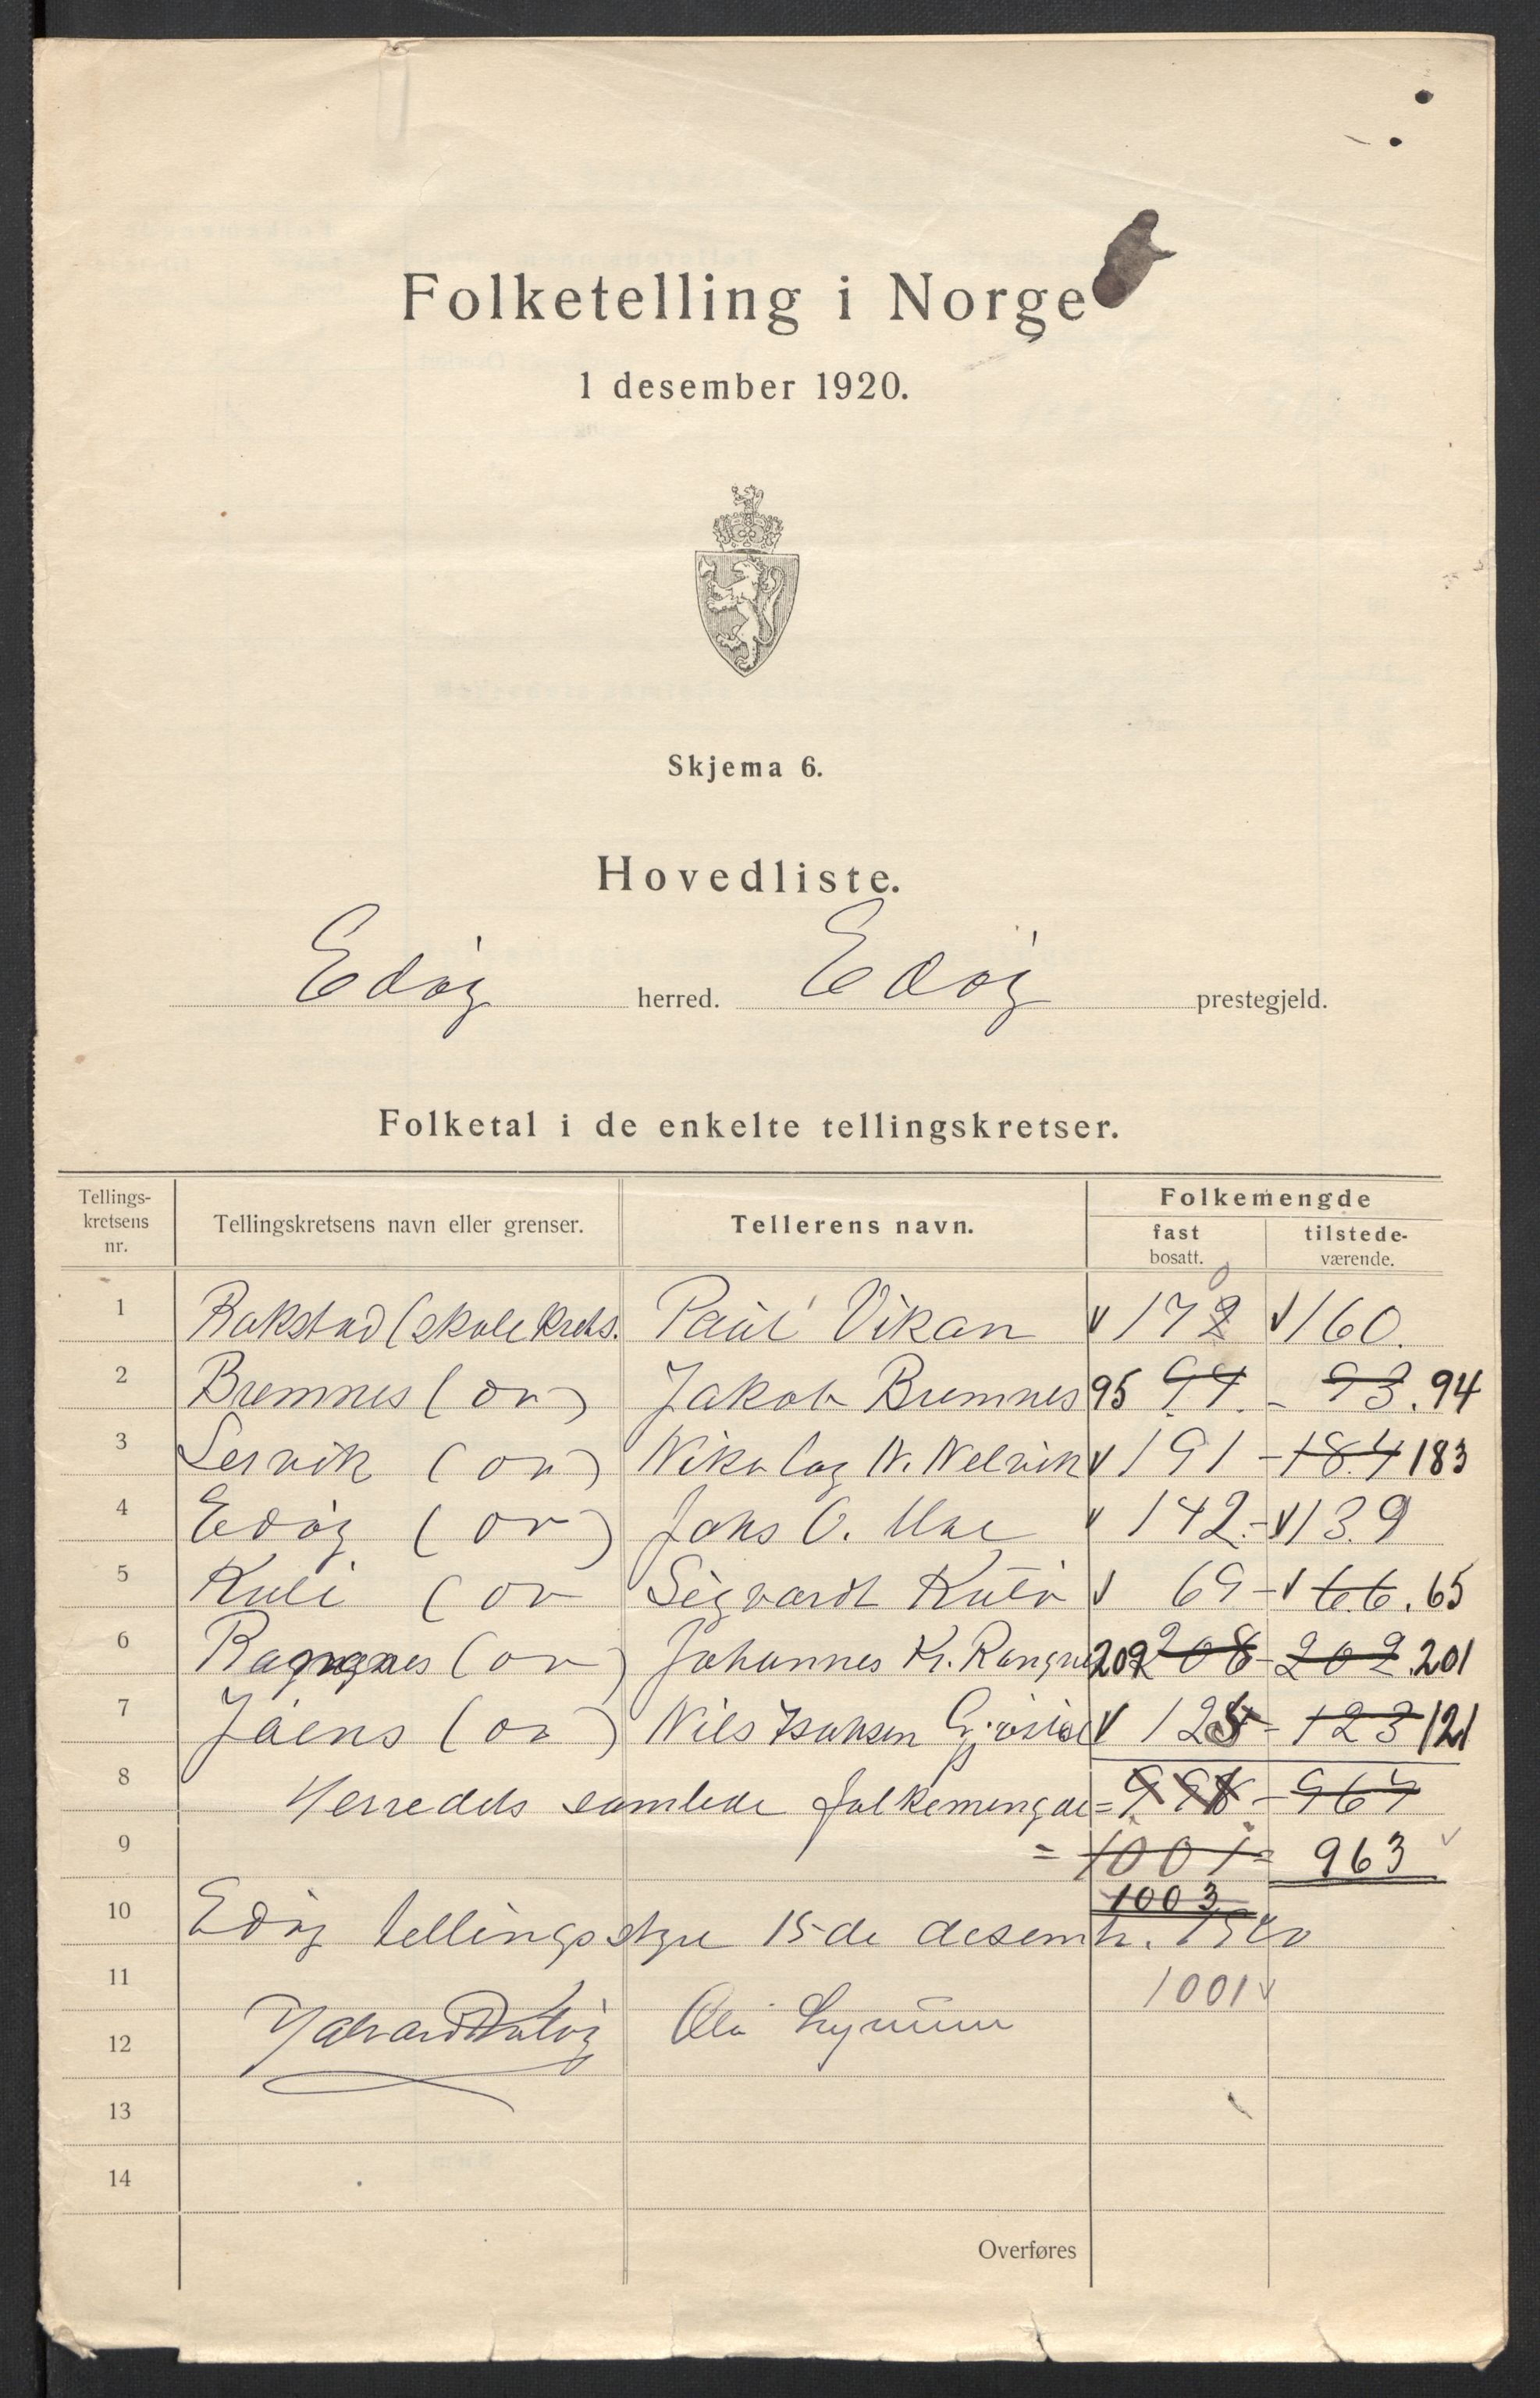 Folketelling i Norge
1 desember 1920.
Skjema 6.
Hovedliste.
Edøy herred. Edøy prestegjeld.
Folketal i de enkelte tellingskretser.
Tellings-kretsens nr. Tellingskretsens navn eller grenser. Tellerens navn. Folkemengde
fast bosatt. tilstede-værende.
1 Rokstad (skolekrets. Paul Vikan 172 0 160.
2 Bremnes ( " ) Jakob Bremnes 95 94. - 93. 94
3 ( " ) Nikolay N. Nelvik 191 - 184 183
4 Edøy ( " ) Johs O. 142. - 139
5 Kuli ( " Sigvardt Kulø 69 - 66. 65
6 Ragnes ( " ) Johannes Kr. 209 208 - 202. 201
7 ( " ) Nils Isaksen 125 - 123 121
8 Herredets samlede folkemengde = 998 - 967
9 = 1001 = 963
1003
10 Edøy tellingsstyre 15-de desembr. 1920
11 1001
12 Ola
13
14
Overføres